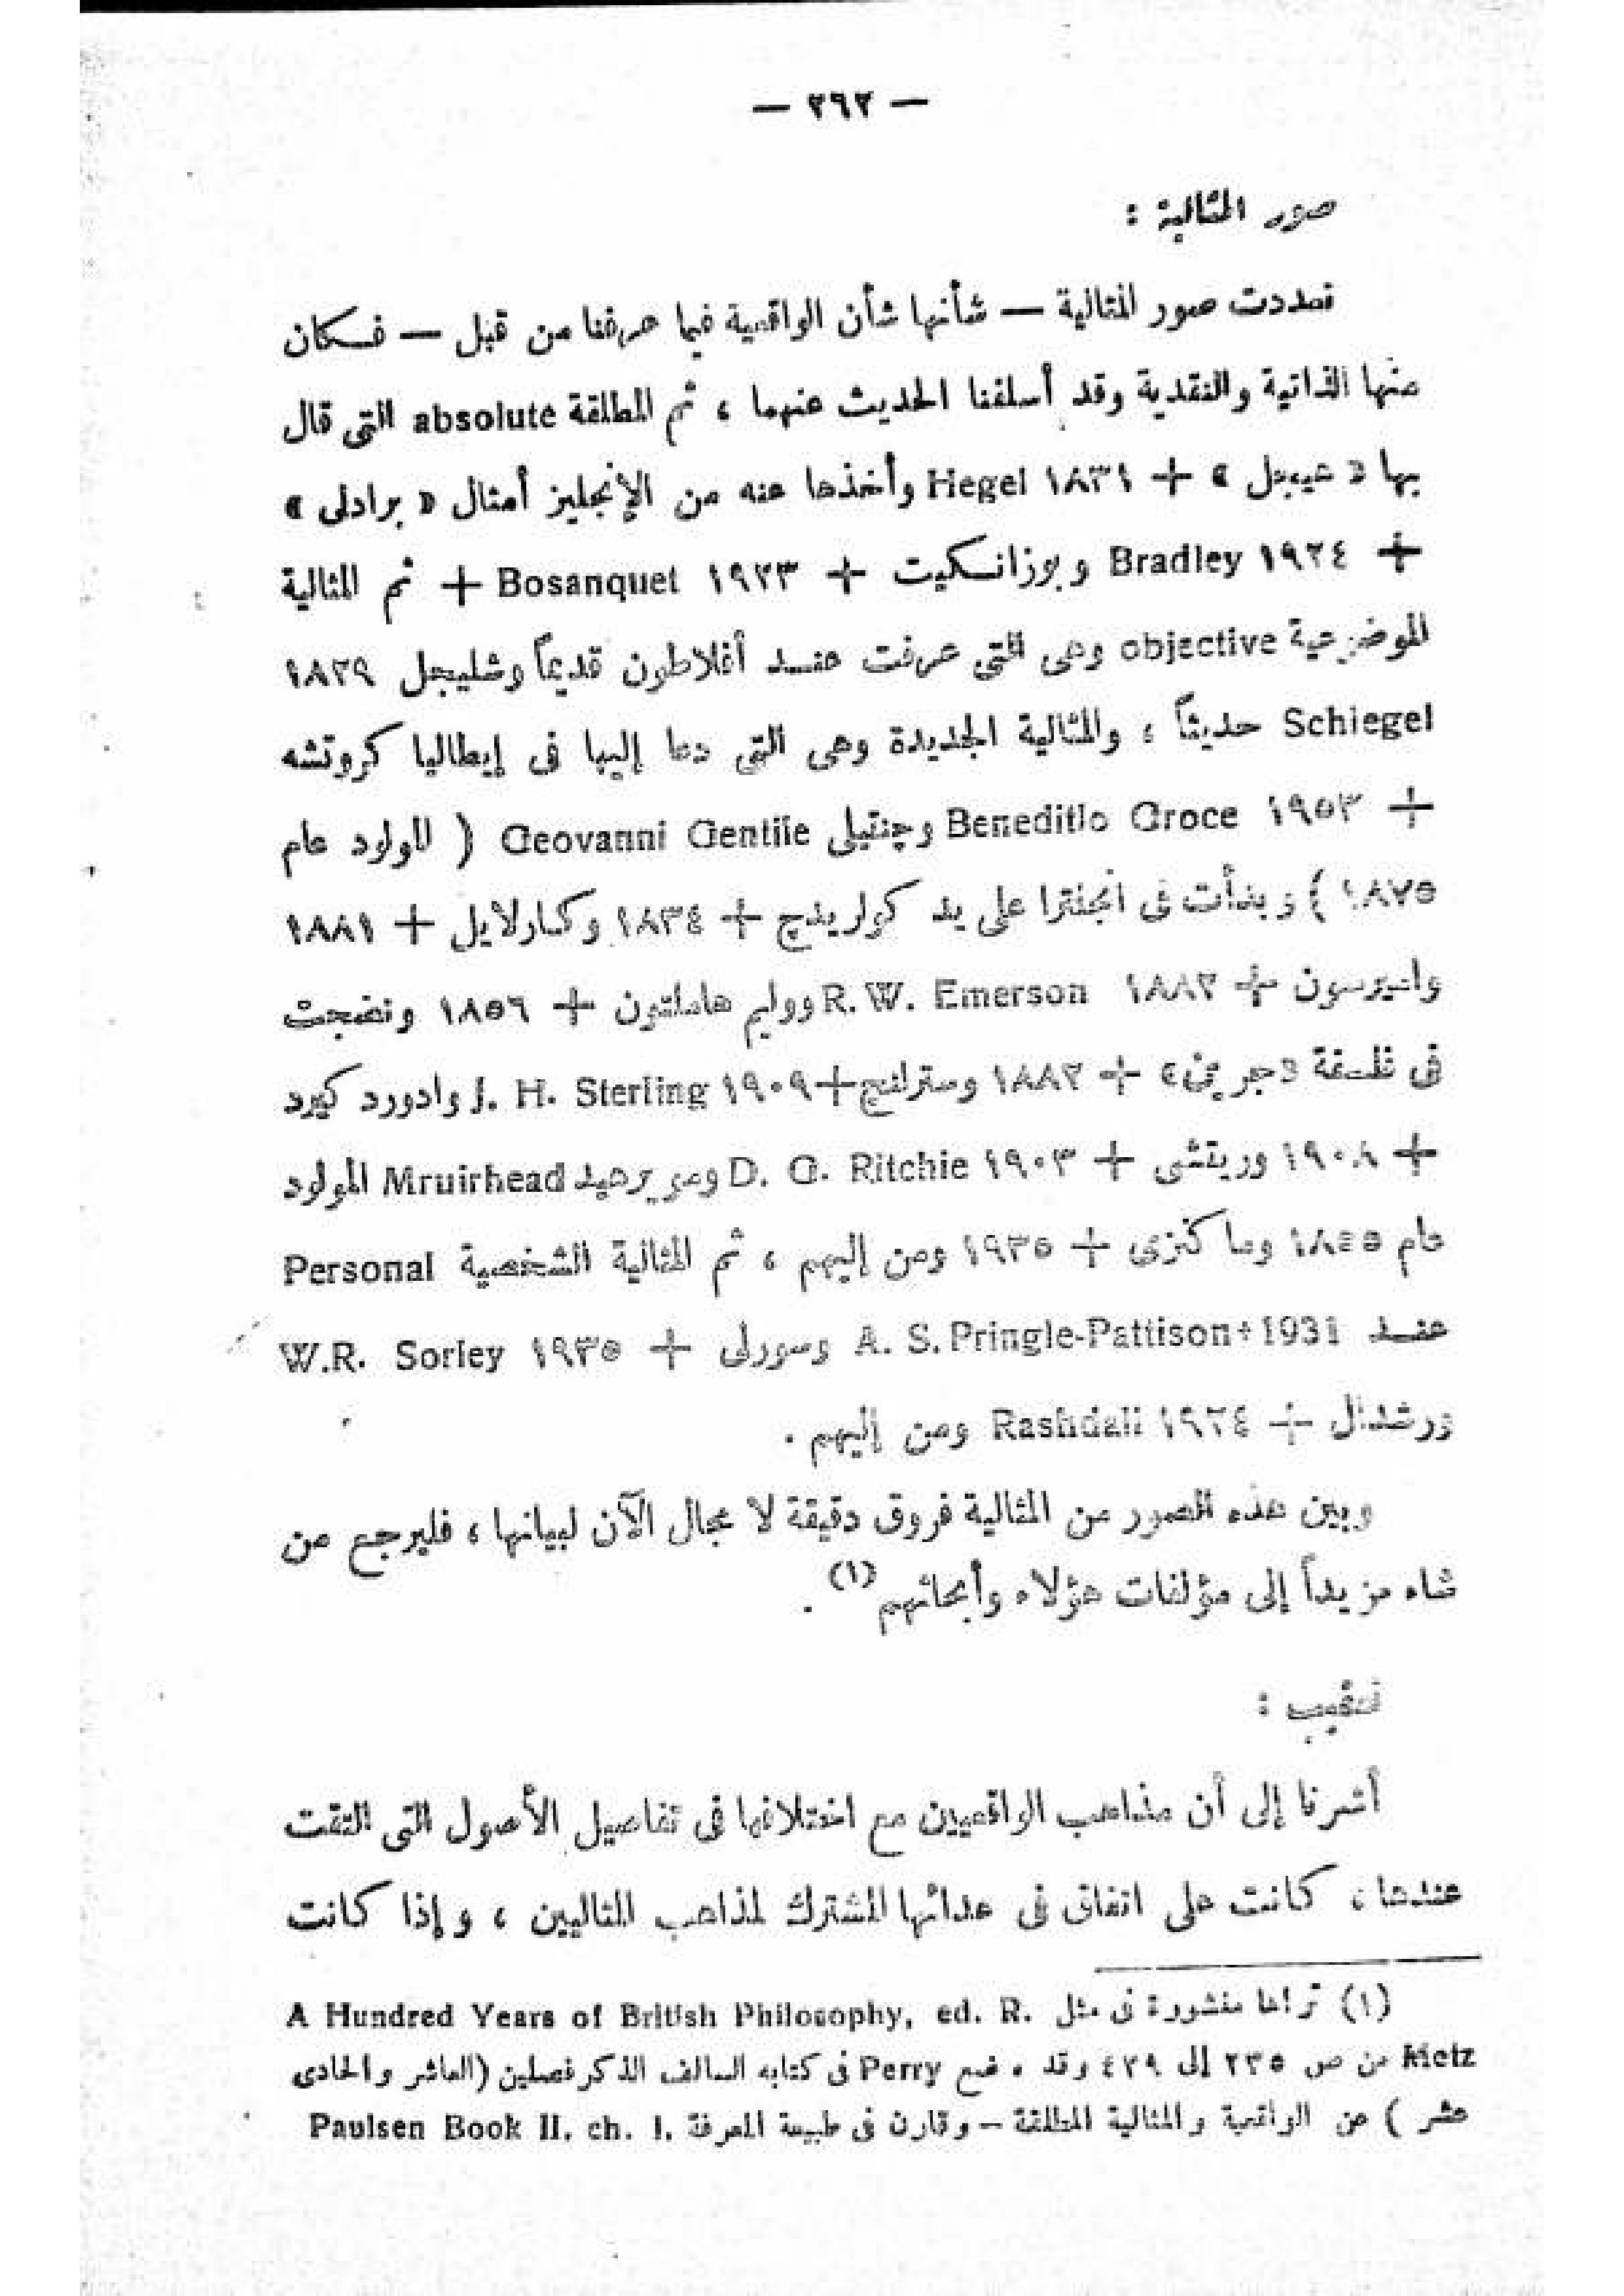 — ٢٦٢ —
صور المثالية :
تعددت صور المثالية — شأنها شأن الواقعية فيما عرفنا من قبل — فكان
منها الذاتية والنقدية وقد أسلفنا الحديث عنهما ، ثم المطلقة absolute التى قال
بها « هيجل » + ١٨٣١ Hegel وأخذها عنه من الإنجليز أمثال « برادلى »
+ ١٩٢٤ Bradley وبوزانكيت + ١٩٢٣ Bosanquet + ثم المثالية
الموضوعية objective وهى التى عرفت عند أفلاطون قديماً وشليجل ١٨٢٩
Schiegel حديثاً ؛ والمثالية الجديدة وهى التى دعا إليها فى إيطاليا كروتشه
+ ١٩٥٣ Beneditlo Croce وچنتيلى Geovanni Gentile ( المولود عام
١٨٧٥ ) وبدأت فى انجلترا على يد كولريدچ + ١٨٣٤ وكارلايل + ١٨٨١
وامرسون + ١٨٨٢ R. W. Emerson ووليم هاملتون + ١٨٥٦ ونضجت
فى فلسفة «جرين» + ١٨٨٢ وسترلنج + ١٩٠٩ J. H. Sterling وادورد كيرد
+ ١٩٠٨ وريتشى + ١٩٠٣ D. G. Ritchie ومويرهيد Mruirhead المولود
عام ١٨٥٥ وماكنزى + ١٩٣٥ ومن إليهم ، ثم المثالية الشخصية Personal
عند A. S. Pringle-Pattison + 1931 وسورلى + ١٩٣٥ W.R. Sorley
ورشدال + ١٩٢٤ Rashdall ومن إليهم .
وبين هذه الصور من المثالية فروق دقيقة لا مجال الآن لبيانها ، فليرجع من
شاء مزيداً إلى مؤلفات هؤلاء وأبحاثهم (١) .
تعقيب :
أشرنا إلى أن مذاهب الواقعيين مع اختلافها فى تفاصيل الأصول التى التقت
عندها ، كانت على اتفاق فى عدائها المشترك لمذاهب المثاليين ، وإذا كانت
(١) تراها منشورة فى مثل A Hundred Years of British Philosophy, ed. R.
Metz من ص ٢٣٥ إلى ٤٢٩ وقد وضع Perry فى كتابه السالف الذكر فصلين (العاشر والحادى
عشر ) عن الواقعية والمثالية المطلقة – وقارن فى طبيعة المعرفة Paulsen Book II. ch. I.